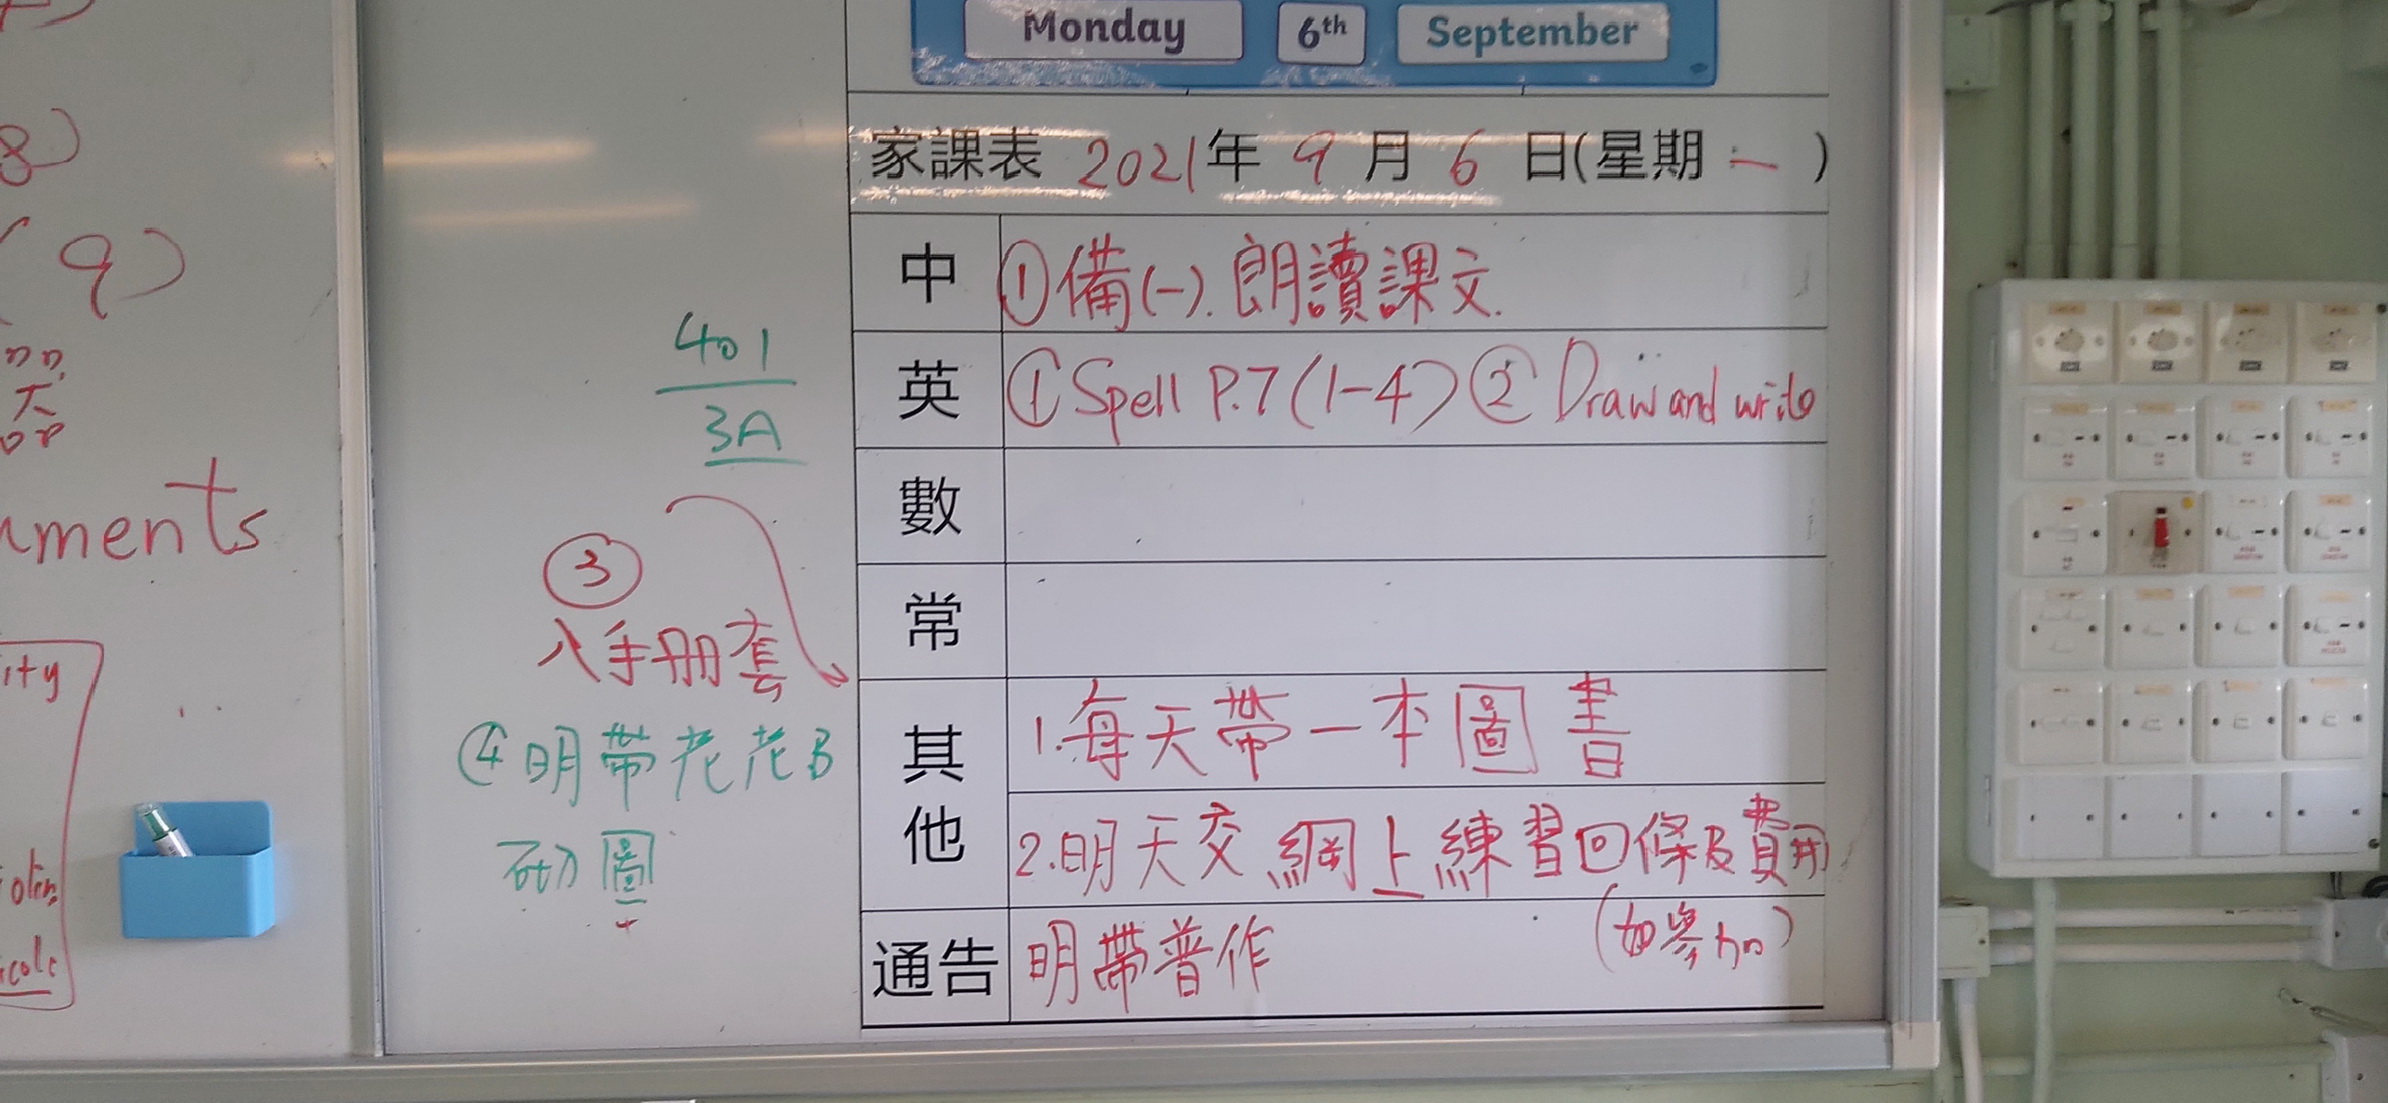 8)
(9)
uments
ity
Monday 6th September
家課表 2021年 9 月 6 日(星期 一 )
中 ①備(一). 朗讀課文.
英 ①Spell P.7 (1-4) ② Draw and write
數
常
其他 1.每天帶一本圖書
2.明天交網上練習回條及費用
(如參加)
通告 明帶普作
401
3A
③
入手冊套
④明帶花花B
砌圖